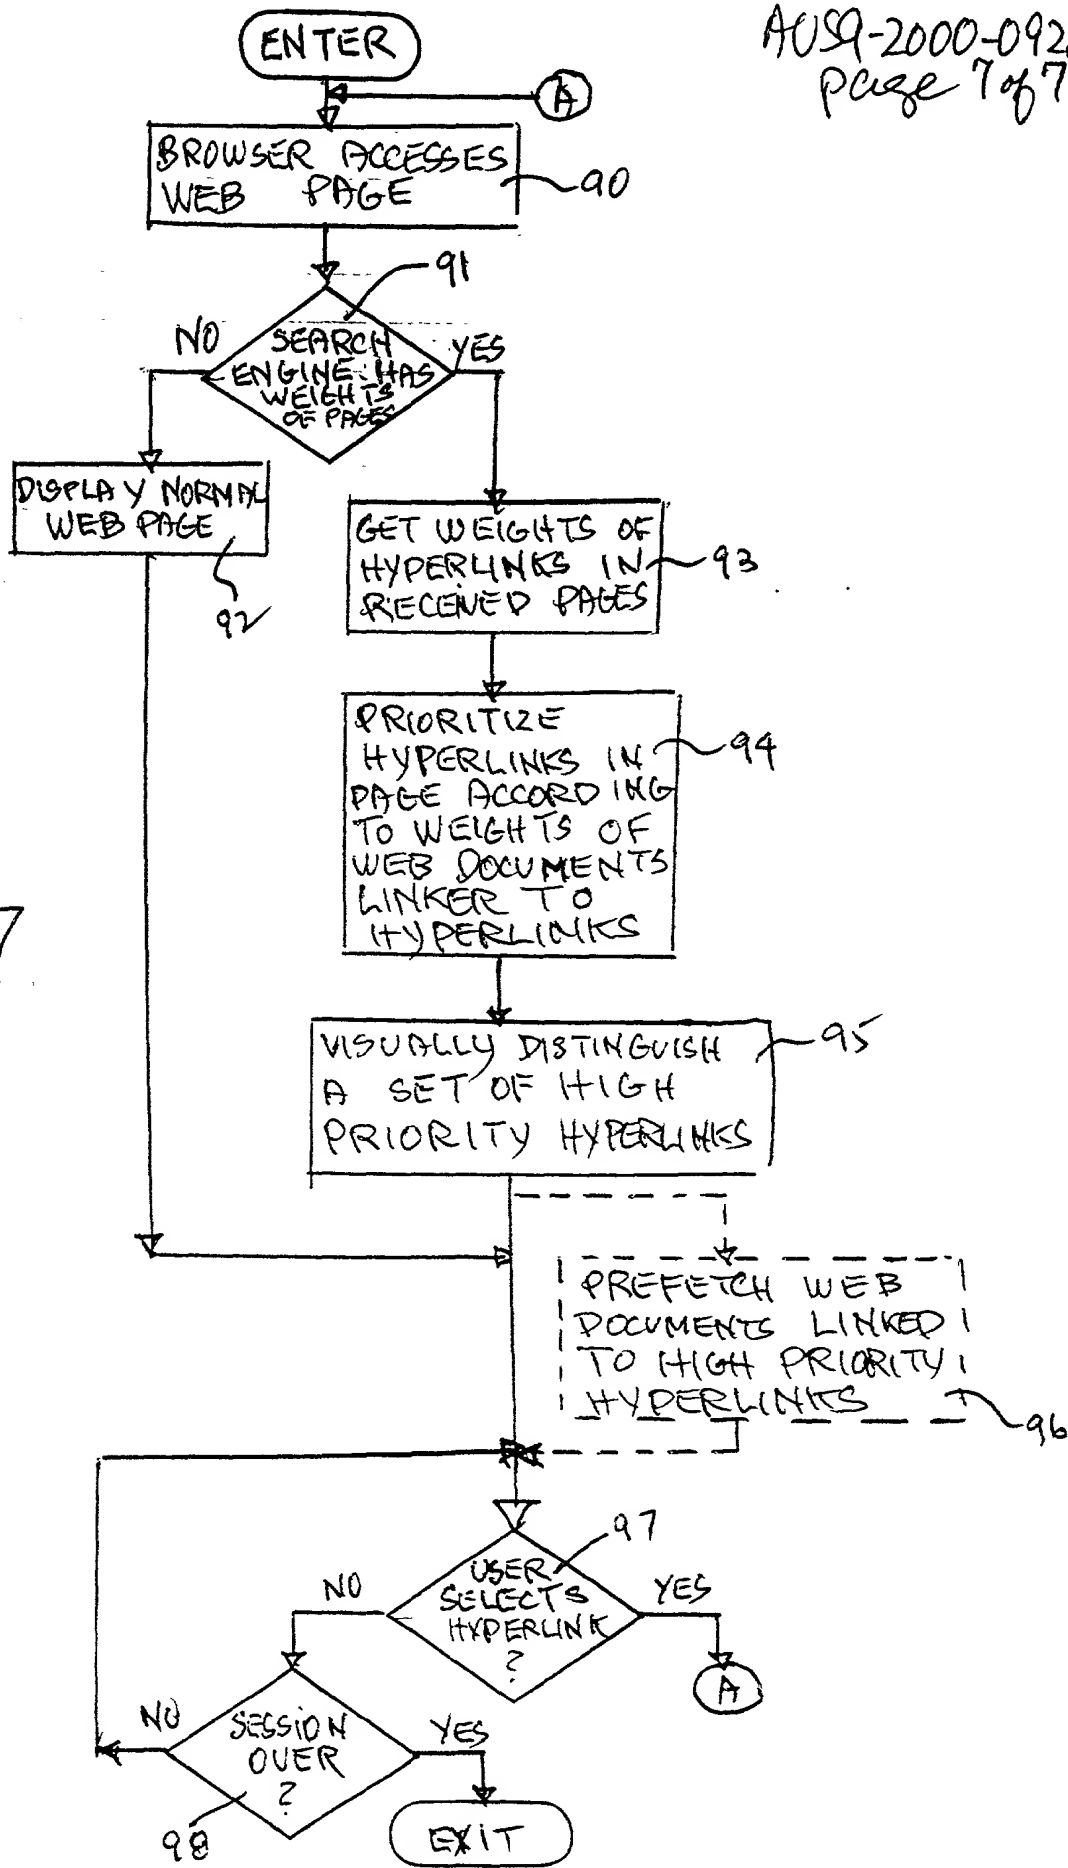 ENTER
AUS9-2000-092
page 7 of 7
A
BROWSER ACCESSES
WEB PAGE
90
91
NO
YES
SEARCH
ENGINE HAS
WEIGHTS
OF PAGES
DISPLAY NORMAL
WEB PAGE
92
GET WEIGHTS OF
HYPERLINKS IN
RECEIVED PAGES
93
PRIORITIZE
HYPERLINKS IN
PAGE ACCORDING
TO WEIGHTS OF
WEB DOCUMENTS
LINKER TO
HYPERLINKS
94
7
VISUALLY DISTINGUISH
A SET OF HIGH
PRIORITY HYPERLINKS
95
PREFETCH WEB
DOCUMENTS LINKED
TO HIGH PRIORITY
HYPERLINKS
96
97
USER
SELECTS
HYPERLINK
?
NO
YES
A
SESSION
OVER
?
NO
YES
98
EXIT